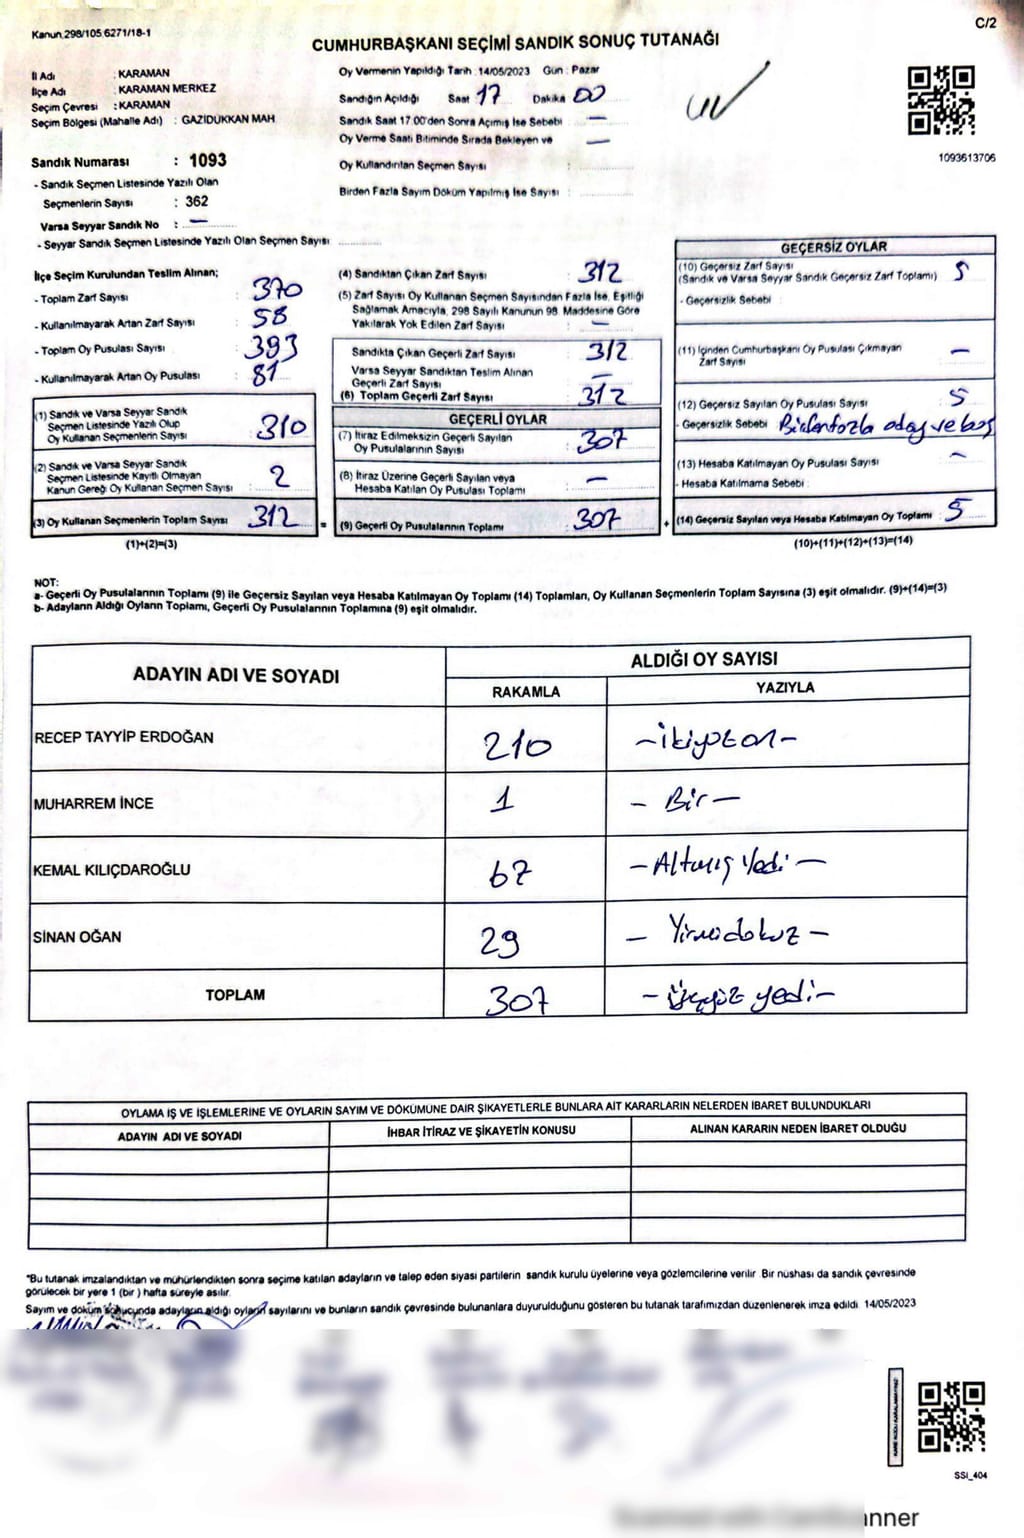 Kanun.298/105.6271/18-1
C/2
CUMHURBAŞKANI SEÇİMİ SANDIK SONUÇ TUTANAĞI
İl Adı : KARAMAN
İlçe Adı : KARAMAN MERKEZ
Seçim Çevresi : KARAMAN
Seçim Bölgesi (Mahalle Adı) : GAZİDÜKKAN MAH.
Sandık Numarası : 1093
- Sandık Seçmen Listesinde Yazılı Olan
Seçmenlerin Sayısı : 362
Varsa Seyyar Sandık No : —
- Seyyar Sandık Seçmen Listesinde Yazılı Olan Seçmen Sayısı
Oy Vermenin Yapıldığı Tarih : 14/05/2023 Gün : Pazar
Sandığın Açıldığı Saat 17 Dakika 00
Sandık Saat 17.00'den Sonra Açılmış İse Sebebi —
Oy Verme Saati Bitiminde Sırada Bekleyen ve —
Oy Kullandırılan Seçmen Sayısı :
Birden Fazla Sayım Döküm Yapılmış İse Sayısı :
1093613706
İlçe Seçim Kurulundan Teslim Alınan;
- Toplam Zarf Sayısı : 370
- Kullanılmayarak Artan Zarf Sayısı : 58
- Toplam Oy Pusulası Sayısı : 393
- Kullanılmayarak Artan Oy Pusulası : 81
(1) Sandık ve Varsa Seyyar Sandık
Seçmen Listesinde Yazılı Olup
Oy Kullanan Seçmenlerin Sayısı : 310
(2) Sandık ve Varsa Seyyar Sandık
Seçmen Listesinde Kayıtlı Olmayan
Kanun Gereği Oy Kullanan Seçmen Sayısı : 2
(3) Oy Kullanan Seçmenlerin Toplam Sayısı : 312
(1)+(2)=(3)
(4) Sandıktan Çıkan Zarf Sayısı : 312
(5) Zarf Sayısı Oy Kullanan Seçmen Sayısından Fazla İse, Eşitliği
Sağlamak Amacıyla, 298 Sayılı Kanunun 98. Maddesine Göre
Yakılarak Yok Edilen Zarf Sayısı : —
Sandıkta Çıkan Geçerli Zarf Sayısı : 312
Varsa Seyyar Sandıktan Teslim Alınan
Geçerli Zarf Sayısı : —
(6) Toplam Geçerli Zarf Sayısı : 312
GEÇERLİ OYLAR
(7) İtiraz Edilmeksizin Geçerli Sayılan
Oy Pusulalarının Sayısı : 307
(8) İtiraz Üzerine Geçerli Sayılan veya
Hesaba Katılan Oy Pusulası Toplamı : —
= (9) Geçerli Oy Pusulalarının Toplamı : 307 +
GEÇERSİZ OYLAR
(10) Geçersiz Zarf Sayısı
(Sandık ve Varsa Seyyar Sandık Geçersiz Zarf Toplamı) : 5
- Geçersizlik Sebebi :
(11) İçinden Cumhurbaşkanı Oy Pusulası Çıkmayan
Zarf Sayısı : —
(12) Geçersiz Sayılan Oy Pusulası Sayısı : 5
- Geçersizlik Sebebi : Birden fazla aday ve boş
(13) Hesaba Katılmayan Oy Pusulası Sayısı : —
- Hesaba Katılmama Sebebi :
(14) Geçersiz Sayılan veya Hesaba Katılmayan Oy Toplamı : 5
(10)+(11)+(12)+(13)=(14)
NOT:
a- Geçerli Oy Pusulalarının Toplamı (9) ile Geçersiz Sayılan veya Hesaba Katılmayan Oy Toplamı (14) Toplamları, Oy Kullanan Seçmenlerin Toplam Sayısına (3) eşit olmalıdır. (9)+(14)=(3)
b- Adayların Aldığı Oyların Toplamı, Geçerli Oy Pusulalarının Toplamına (9) eşit olmalıdır.
ADAYIN ADI VE SOYADI
ALDIĞI OY SAYISI
RAKAMLA YAZIYLA
RECEP TAYYİP ERDOĞAN 210 -ikiyüzon-
MUHARREM İNCE 1 - Bir -
KEMAL KILIÇDAROĞLU 67 - Altmış Yedi -
SİNAN OĞAN 29 - Yirmidokuz -
TOPLAM 307 - Üçyüz yedi -
OYLAMA İŞ VE İŞLEMLERİNE VE OYLARIN SAYIM VE DÖKÜMÜNE DAİR ŞİKAYETLERLE BUNLARA AİT KARARLARIN NELERDEN İBARET BULUNDUKLARI
ADAYIN ADI VE SOYADI İHBAR İTİRAZ VE ŞİKAYETİN KONUSU ALINAN KARARIN NEDEN İBARET OLDUĞU
*Bu tutanak imzalandıktan ve mühürlendikten sonra seçime katılan adayların ve talep eden siyasi partilerin sandık kurulu üyelerine veya gözlemcilerine verilir. Bir nüshası da sandık çevresinde
görülecek bir yere 1 (bir) hafta süreyle asılır.
Sayım ve döküm sonucunda adayların aldığı oyların sayılarını ve bunların sandık çevresinde bulunanlara duyurulduğunu gösteren bu tutanak tarafımızdan düzenlenerek imza edildi. 14/05/2023
SSİ_404